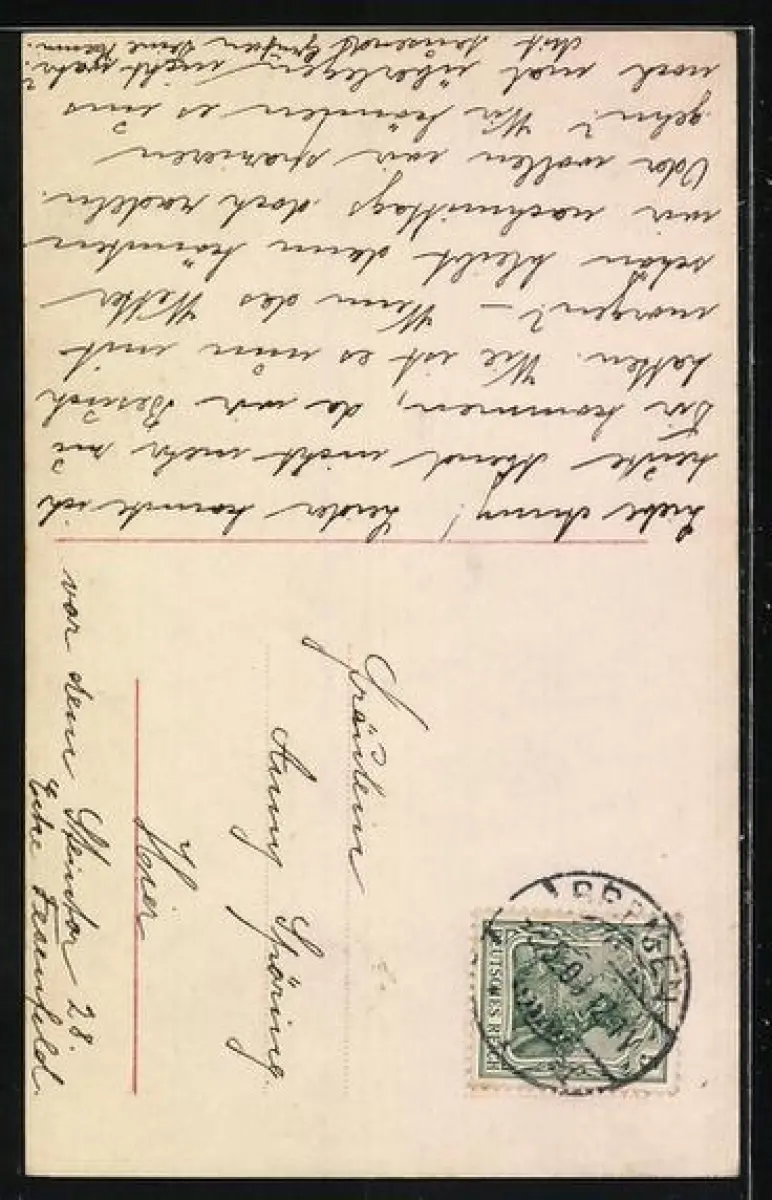 Liebe Anny! Leider konnte ich
heute Abend nicht mehr zu
Dir kommen, da wir Besuch
hatten. Wie ist es nun mit
morgen? – Wenn das Wetter
schön bleibt dann könnten
wir nachmittags doch radeln.
Oder wollen wir spazieren
gehn? Wir können es uns
noch mal überlegen, nicht wahr?
Mit tausend Grüßen Deine
Fräulein
Anny Spöring
Hier
vor dem Steintor 28
Ecke Fesenfeld.
DEUTSCHES REICH